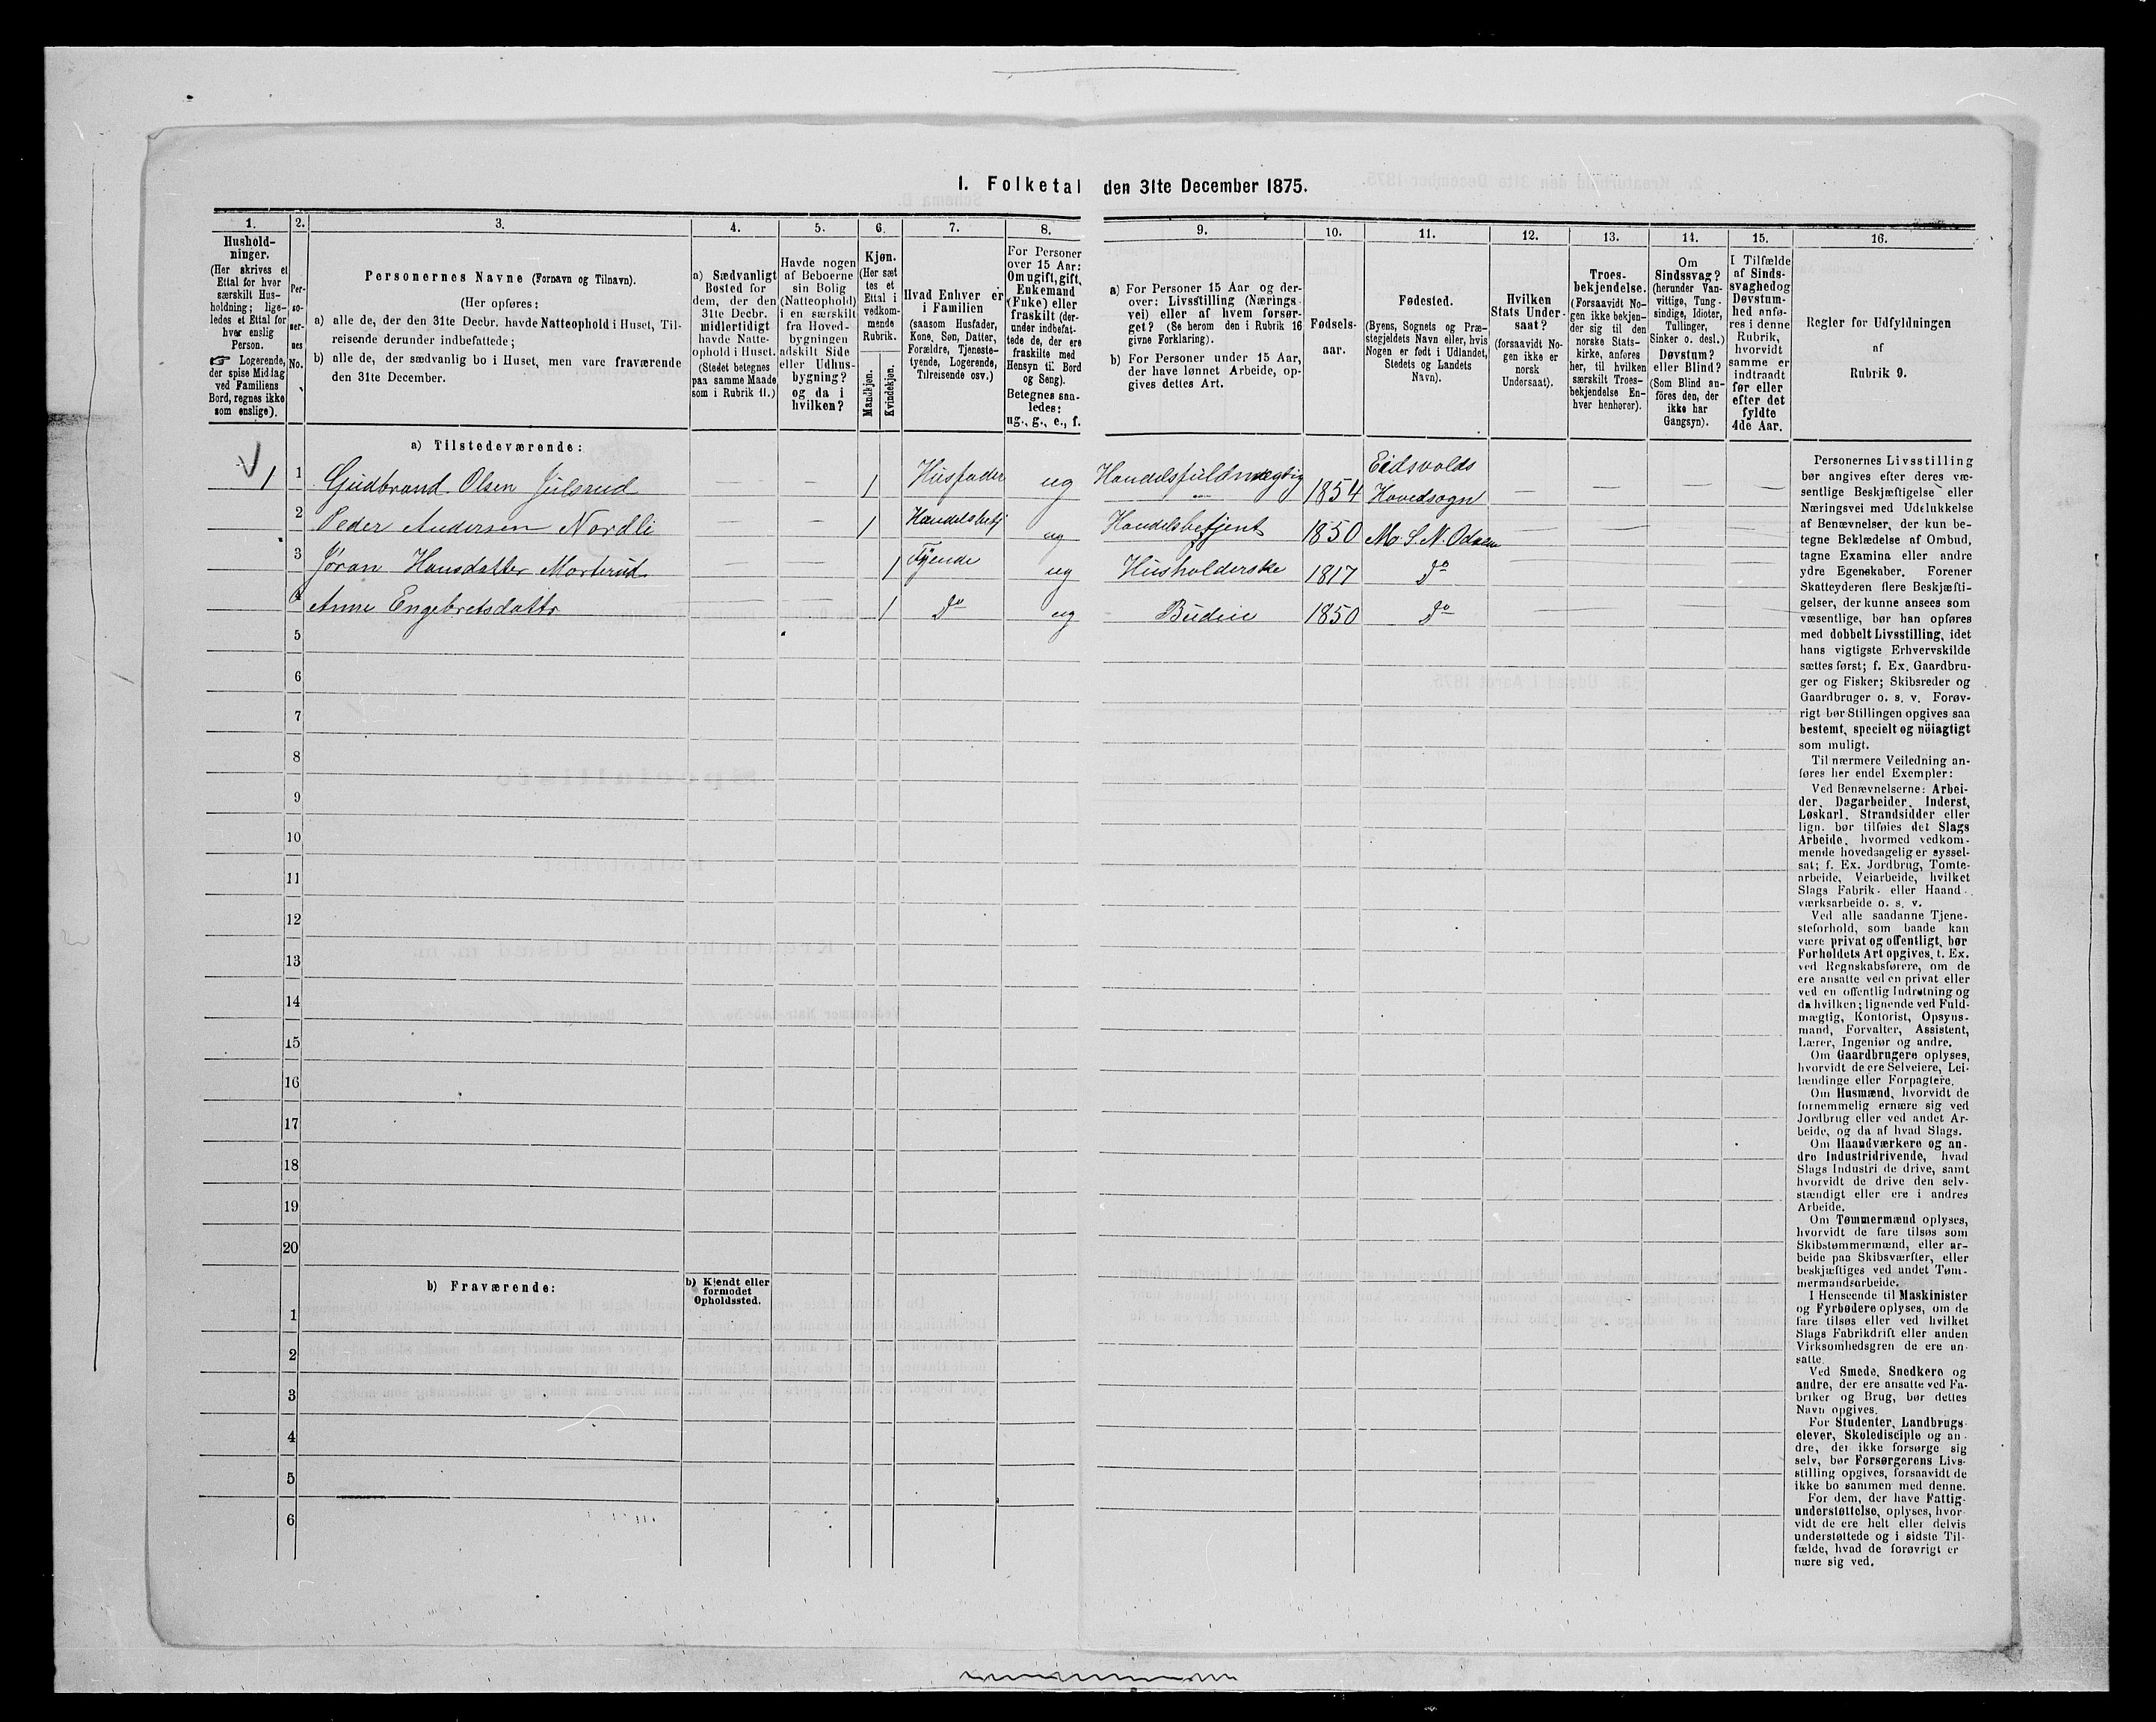 1. Folketal den 31te December 1875.
1.
2.
3.
4.
5.
6.
7.
8.
9.
10.
11.
12.
13.
14.
15.
16.
Hushold-
ninger.
(Her skrives et
Ettal for hver
særskilt Hus-
holdning; lige-
ledes et Ettal for
hver enslig
Person.
☞ Logerende,
der spise Middag
ved Familiens
Bord, regnes ikke
som enslige).
Per-
so-
ner-
nes
No.
Personernes Navne (Fornavn og Tilnavn).
(Her opføres:
a) alle de, der den 31te Decbr. havde Natteophold i Huset, Til-
reisende derunder indbefattede;
b) alle de, der sædvanlig bo i Huset, men vare fraværende
den 31te December.
a) Sædvanligt
Bosted for
dem, der den
31te Decbr.
midlertidigt
havde Natte-
ophold i Huset.
(Stedet betegnes
paa samme Maade
som i Rubrik 11.)
Havde nogen
af Beboerne
sin Bolig
(Natteophold)
i en særskilt
fra Hoved-
bygningen
adskilt Side
eller Udhus-
bygning?
og da i
hvilken?
Kjøn.
(Her sæt
tes et
Ettal i
vedkom-
mende
Rubrik.
Mandkjøn.
Kvindekjøn.
Hvad Enhver er
i Familien
(saasom Husfader,
Kone, Søn, Datter,
Forældre, Tjeneste-
tyende, Logerende,
Tilreisende osv.)
For Personer
over 15 Aar:
Om ugift, gift,
Enkemand
(Enke) eller
fraskilt (der-
under indbefat-
tede de, der ere
fraskilte med
Hensyn til Bord
og Seng).
Betegnes saa-
ledes:
ug., g., e., f.
a) For Personer 15 Aar og der-
over: Livsstilling (Nærings-
vei) eller af hvem forsør-
get? (Se herom den i Rubrik 16
givne Forklaring).
b) For Personer under 15 Aar,
der have lønnet Arbeide, op-
gives dettes Art.
Fødsels-
aar.
Fødested.
(Byens, Sognets og Præ-
stegjeldets Navn eller, hvis
Nogen er født i Udlandet,
Stedets og Landets
Navn).
Hvilken
Stats Under-
saat?
(forsaavidt No-
gen ikke er
norsk
Undersaat).
Troes-
bekjendelse.
(Forsaavidt No-
gen ikke bekjen-
der sig til den
norske Stats-
kirke, anføres
her, til hvilken
særskilt Troes-
bekjendelse En-
hver henhører).
Om
Sindssvag?
(herunder Van-
vittige, Tung-
sindige, Idioter,
Tullinger,
Sinker o. desl.)
Døvstum?
eller Blind?
(Som Blind an-
føres den, der
ikke har
Gangsyn).
I Tilfælde
af Sinds-
svaghed og
Døvstum-
hed anfø-
res i denne
Rubrik,
hvorvidt
samme er
indtraadt
før eller
efter det
fyldte
4de Aar.
Regler for Udfyldningen
af
Rubrik 9.
a) Tilstedeværende:
1 1 Gudbrand Olsen Julsrud — — 1 Husfader ug Handelsfuldmægtig 1854 Eidsvolds Hovedsogn — — — —
2 Peder Andersen Nordli — — 1 Handelsbetj ug Handelsbetjent 1850 Mo S. N. Odalen
3 Jøran Hansdatter Morterud — — 1 Tyende ug Husholderske 1817 Do
4 Anne Engebretsdattr — — 1 Do ug Budeie 1850 Do
5
6
7
8
9
10
11
12
13
14
15
16
17
18
19
20
b) Fraværende:
b) Kjendt eller
formodet
Opholdssted.
1
2
3
4
5
6
Personernes Livsstilling
bør angives efter deres væ-
sentlige Beskjæftigelse eller
Næringsvei med Udelukkelse
af Benævnelser, der kun be-
tegne Beklædelse af Ombud,
tagne Examina eller andre
ydre Egenskaber. Forener
Skatteyderen flere Beskjæfti-
gelser, der kunne ansees som
væsentlige, bør han opføres
med dobbelt Livsstilling, idet
hans vigtigste Erhvervskilde
sættes først; f. Ex. Gaardbru-
ger og Fisker; Skibsreder og
Gaardbruger o. s. v. Forøv-
rigt bør Stillingen opgives saa
bestemt, specielt og nöiagtigt
som muligt.
Til nærmere Veiledning an-
føres her endel Exempler:
Ved Benævnelserne: Arbei-
der, Dagarbeider, Inderst,
Løskarl, Strandsidder eller
lign. bør tilføies det Slags
Arbeide, hvormed vedkom-
mende hovedsagelig er syssel-
sat; f. Ex. Jordbrug, Tomte-
arbeide, Veiarbeide, hvilket
Slags Fabrik- eller Haand-
værksarbeide o. s. v.
Ved alle saadanne Tjene-
steforhold, som baade kan
være privat og offentligt, bør
Forholdets Art opgives, t. Ex.
ved Regnskabsførere, om de
ere ansatte ved en privat eller
ved en offentlig Indretning og
da hvilken; lignende ved Fuld-
mægtig, Kontorist, Opsyns-
mand, Forvalter, Assistent,
Lærer, Ingeniør og andre.
Om Gaardbrugere oplyses,
hvorvidt de ere Selveiere, Lei-
lændinge eller Forpagtere.
Om Husmænd, hvorvidt de
fornemmelig ernære sig ved
Jordbrug eller ved andet Ar-
beide, og da af hvad Slags.
Om Haandværkere og an-
dre Industridrivende, hvad
Slags Industri de drive, samt
hvorvidt de drive den selv-
stændigt eller ere i andres
Arbeide.
Om Tømmermænd oplyses,
hvorvidt de fare tilsøs som
Skibstømmermænd, eller ar-
beide paa Skibsværfter, eller
beskjæftiges ved andet Tøm-
mermandsarbeide.
I Henseende til Maskinister
og Fyrbødere oplyses, om de
fare tilsøs eller ved hvilket
Slags Fabrikdrift eller anden
Virksomhedsgren de ere an-
satte.
Ved Smede, Snedkere og
andre, der ere ansatte ved Fa-
briker og Brug, bør dettes
Navn opgives.
For Studenter, Landbrugs-
elever, Skoledisciple og an-
dre, der ikke forsørge sig
selv, bør Forsørgerens Livs-
stilling opgives, forsaavidt de
ikke bo sammen med denne.
For dem, der have Fattig-
understøttelse, oplyses, hvor-
vidt de ere helt eller delvis
understøttede og i sidste Til-
fælde, hvad de forøvrigt er
nære sig ved.